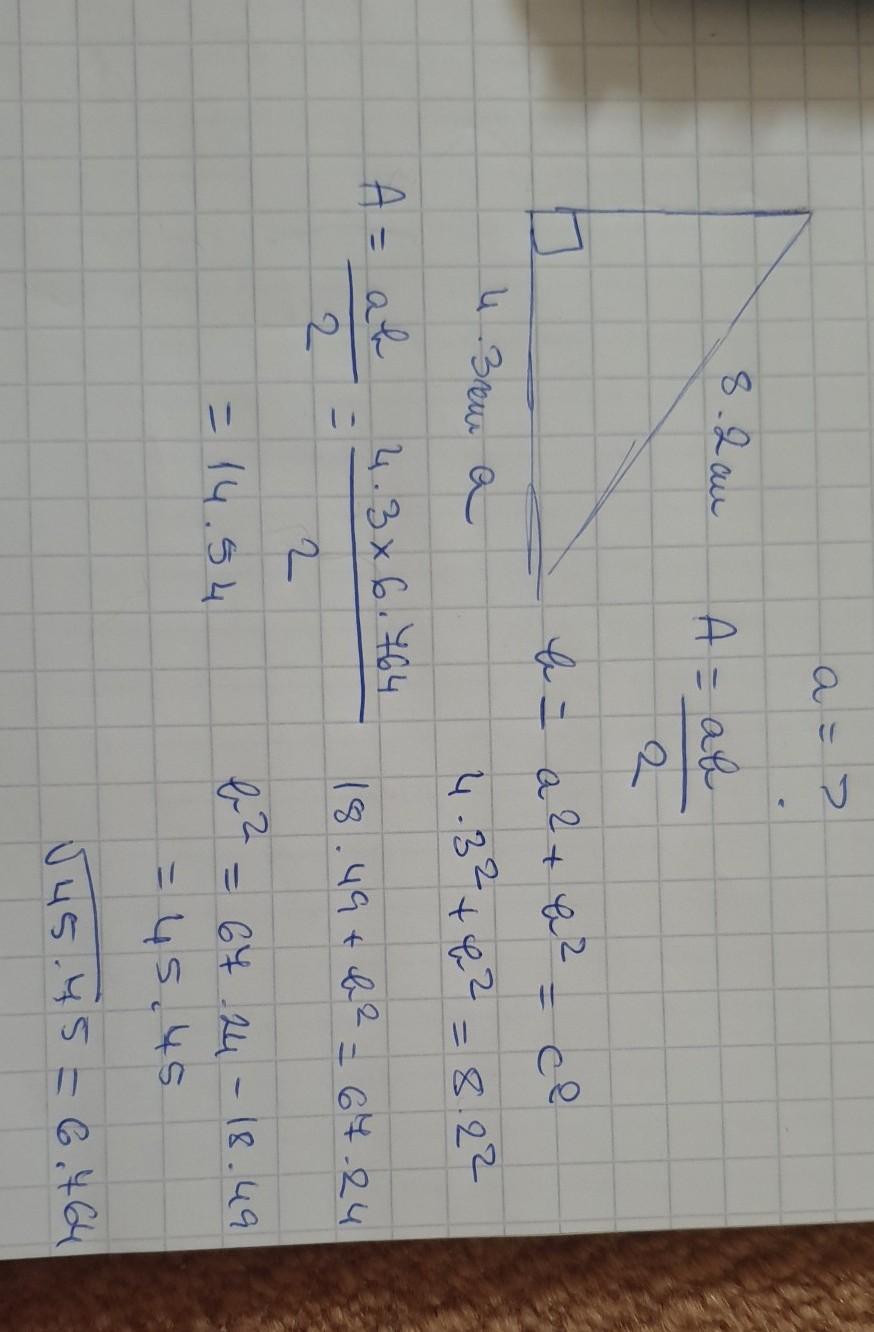 a = ?
A = ab
2
8.2cm
4.3cm a
b = a² + b² = c²
4.3² + b² = 8.2²
18.49 + b² = 67.24
b² = 67.24 - 18.49
= 45.75
√45.75 = 6.764
A = ab = 4.3 x 6.764
2 2
= 14.54